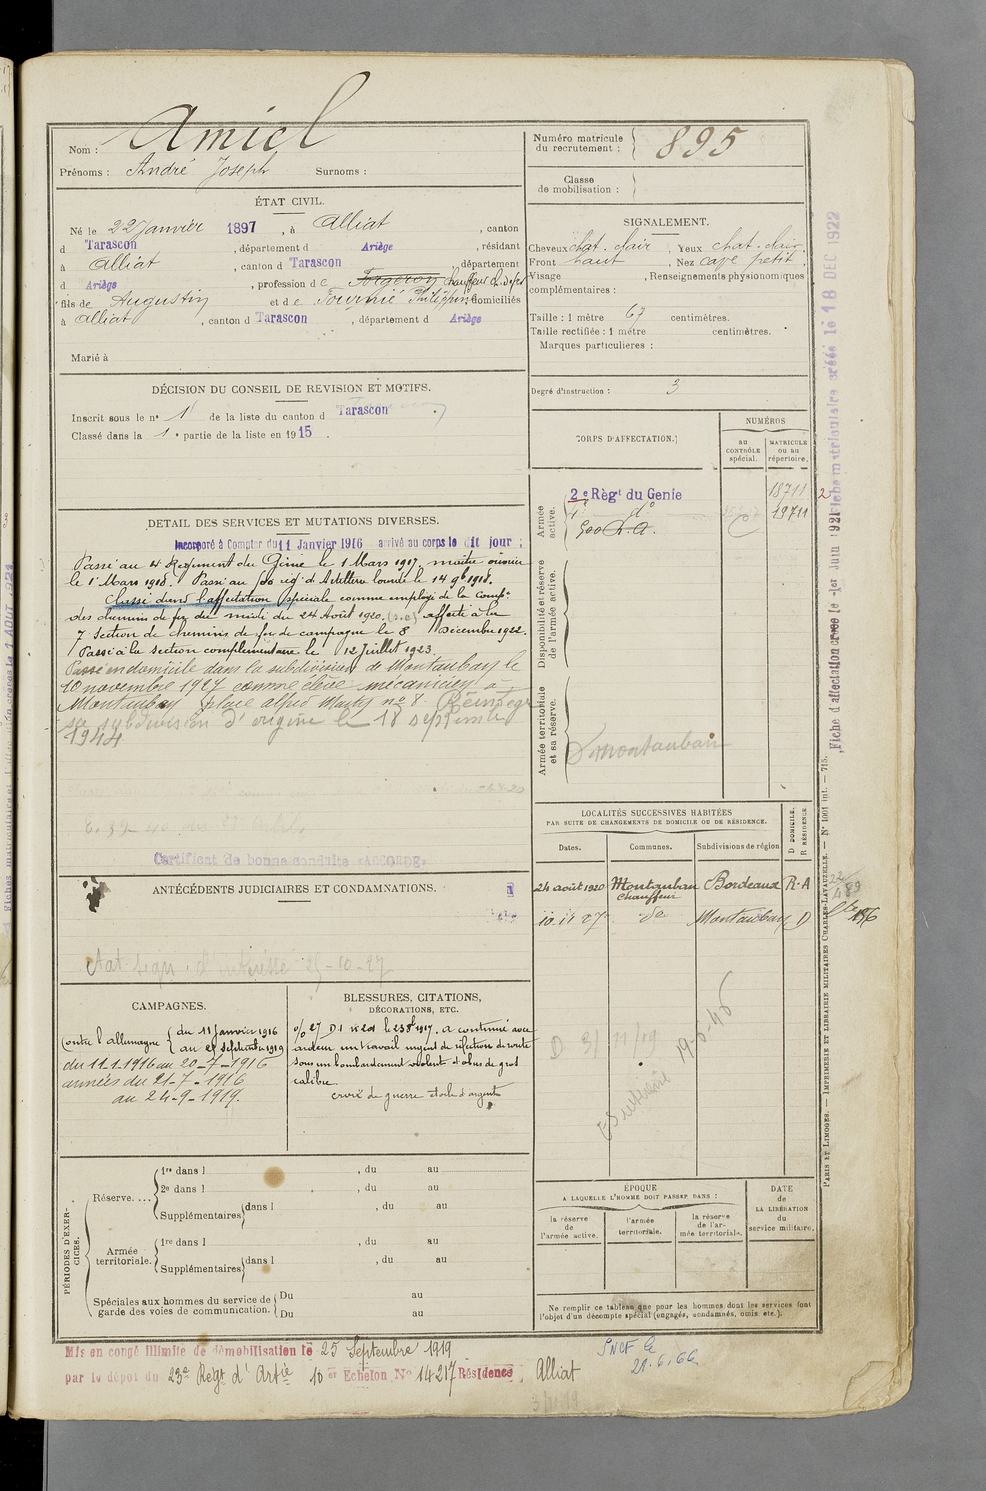 Nom : Amiel
Prénoms : André Joseph Surnoms :
ÉTAT CIVIL.
Né le 22 Janvier 1897, à Alliat, canton
d Tarascon, département d Ariège, résidant
à Alliat, canton d Tarascon, département
d Ariège, profession de Forgeron Chauffeur
fils de Augustin et de Philippine domiciliés
à Alliat, canton d Tarascon, département d Ariège
Marié à
DÉCISION DU CONSEIL DE REVISION ET MOTIFS.
Inscrit sous le n° 1 de la liste du canton d Tarascon.
Classé dans la 1e partie de la liste en 1915.
DETAIL DES SERVICES ET MUTATIONS DIVERSES.
Incorporé à Compter du 11 Janvier 1916 arrivé au corps le dit jour ;
Passé au 4 Régiment du Génie le 1 Mars 1917, maître ouvrier
le 1er Mars 1918. Passé au rég. d'Artillerie lourde le 14 9bre 1918.
Classé dans l'affectation spéciale comme employé de la Compie
des chemins de fer du midi du 24 Août 1920. affecté à la
7 Section de chemins de fer de campagne le 8 Décembre 1922.
Passé à la section complémentaire le 12 Juillet 1923
Passé en domicile dans la subdivision de Montauban le
10 novembre 1927 comme élève mécanicien à
Montauban place alfred Marty n° 8. Réintégré
sa subdivision d'origine le 18 septembre
1944
Certificat de bonne conduite "ACCORDÉ"
ANTÉCÉDENTS JUDICIAIRES ET CONDAMNATIONS.
25-10-27
CAMPAGNES.
Contre l'allemagne { du 11 Janvier 1916
au 25 Septembre 1919
du 11-1-1916 au 20-7-1916
armées du 21-7-1916
au 24-9-1919.
BLESSURES, CITATIONS,
DÉCORATIONS, ETC.
o/o 27 D.I n° 201 le 23 8bre 1917. a continué avec
ardeur un travail urgent de réfection de route
sous un bombardement violent d'obus de gros
calibre
croix de guerre étoile d'argent
PÉRIODES D'EXERCICES.
Réserve.... 1re dans l , du au
2e dans l , du au
Supplémentaires { dans l , du au
Armée territoriale. 1re dans l , du au
Supplémentaires { dans l , du au
Spéciales aux hommes du service de garde des voies de communication. { Du au
Du au
Mis en congé illimité de démobilisation le 25 Septembre 1919
par le dépot du 23e Régt d'Artie 10eme Echelon N° 14217 Résidence, Alliat
Numéro matricule
du recrutement : } 895
Classe
de mobilisation : }
SIGNALEMENT.
Cheveux chat. clair, Yeux chat. clair.
Front haut, Nez cave petit
Visage , Renseignements physionomiques
complémentaires :
Taille : 1 mètre 67 centimètres.
Taille rectifiée : 1 mètre centimètres.
Marques particulières :
Degré d'instruction : 3
CORPS D'AFFECTATION.
NUMÉROS
AU CONTRÔLE spécial.
MATRICULE ou au répertoire.
Armée active.
2e Règt du Genie 18711
4e do 19711
500 R.A.
Disponibilité et réserve de l'armée active.
Armée territoriale et sa réserve.
Montauban
LOCALITÉS SUCCESSIVES HABITÉES
PAR SUITE DE CHANGEMENTS DE DOMICILE OU DE RÉSIDENCE.
Dates. Communes. Subdivisions de région D DOMICILE. R RÉSIDENCE
24 août 1920 Montauban Bordeaux R.A
Chauffeur
10-11 27 do Montauban D
19-6-46
ÉPOQUE
A LAQUELLE L'HOMME DOIT PASSER DANS :
la réserve de l'armée active.
l'armée territoriale.
la réserve de l'armée territoriale.
DATE de LA LIBÉRATION du service militaire.
Ne remplir ce tableau que pour les hommes dont les services font
l'objet d'un décompte spécial (engagés, condamnés, omis etc.).
SNCF le
21.6.66
Fiche d'affectation créée le 1er Juin 1921
Fiche matriculaire créée le 18 DEC 1922
PARIS ET LIMOGES. — IMPRIMERIE ET LIBRAIRIE MILITAIRES CHARLES-LAVAUZELLE. — N° 1001 int. — 715.